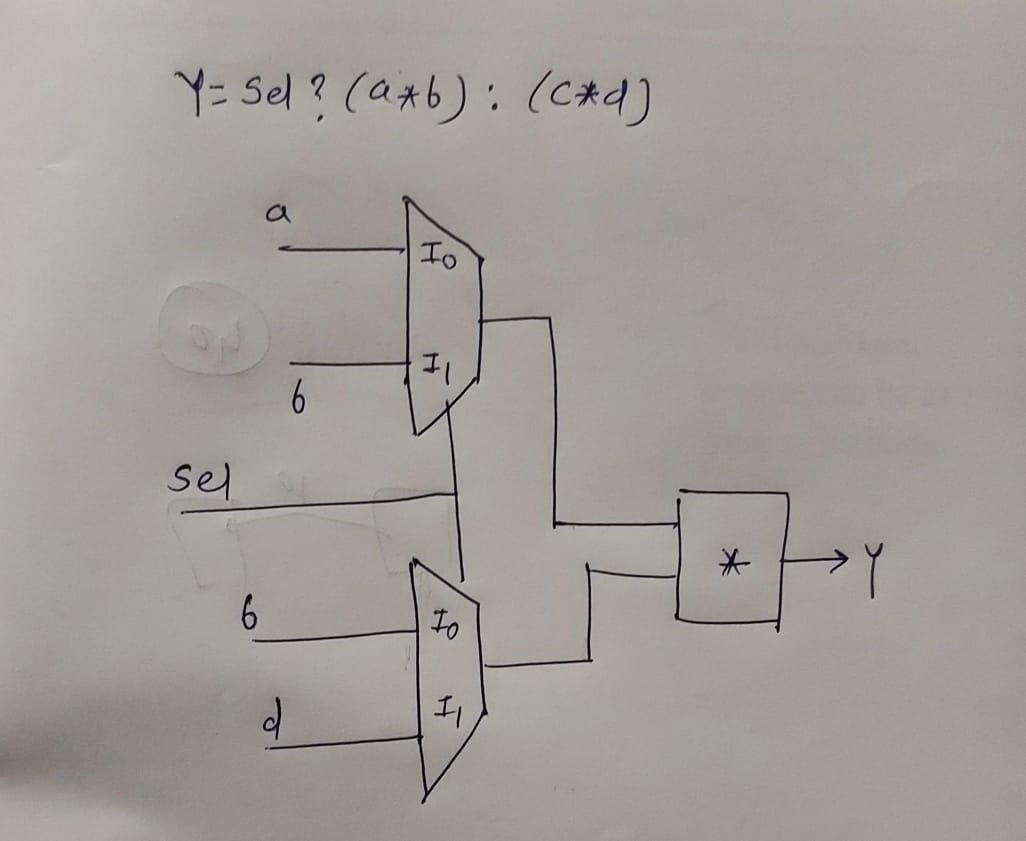 Y = Sel ? (a*b) : (c*d)
a
I0
I1
b
Sel
b
I0
d
I1
*
Y